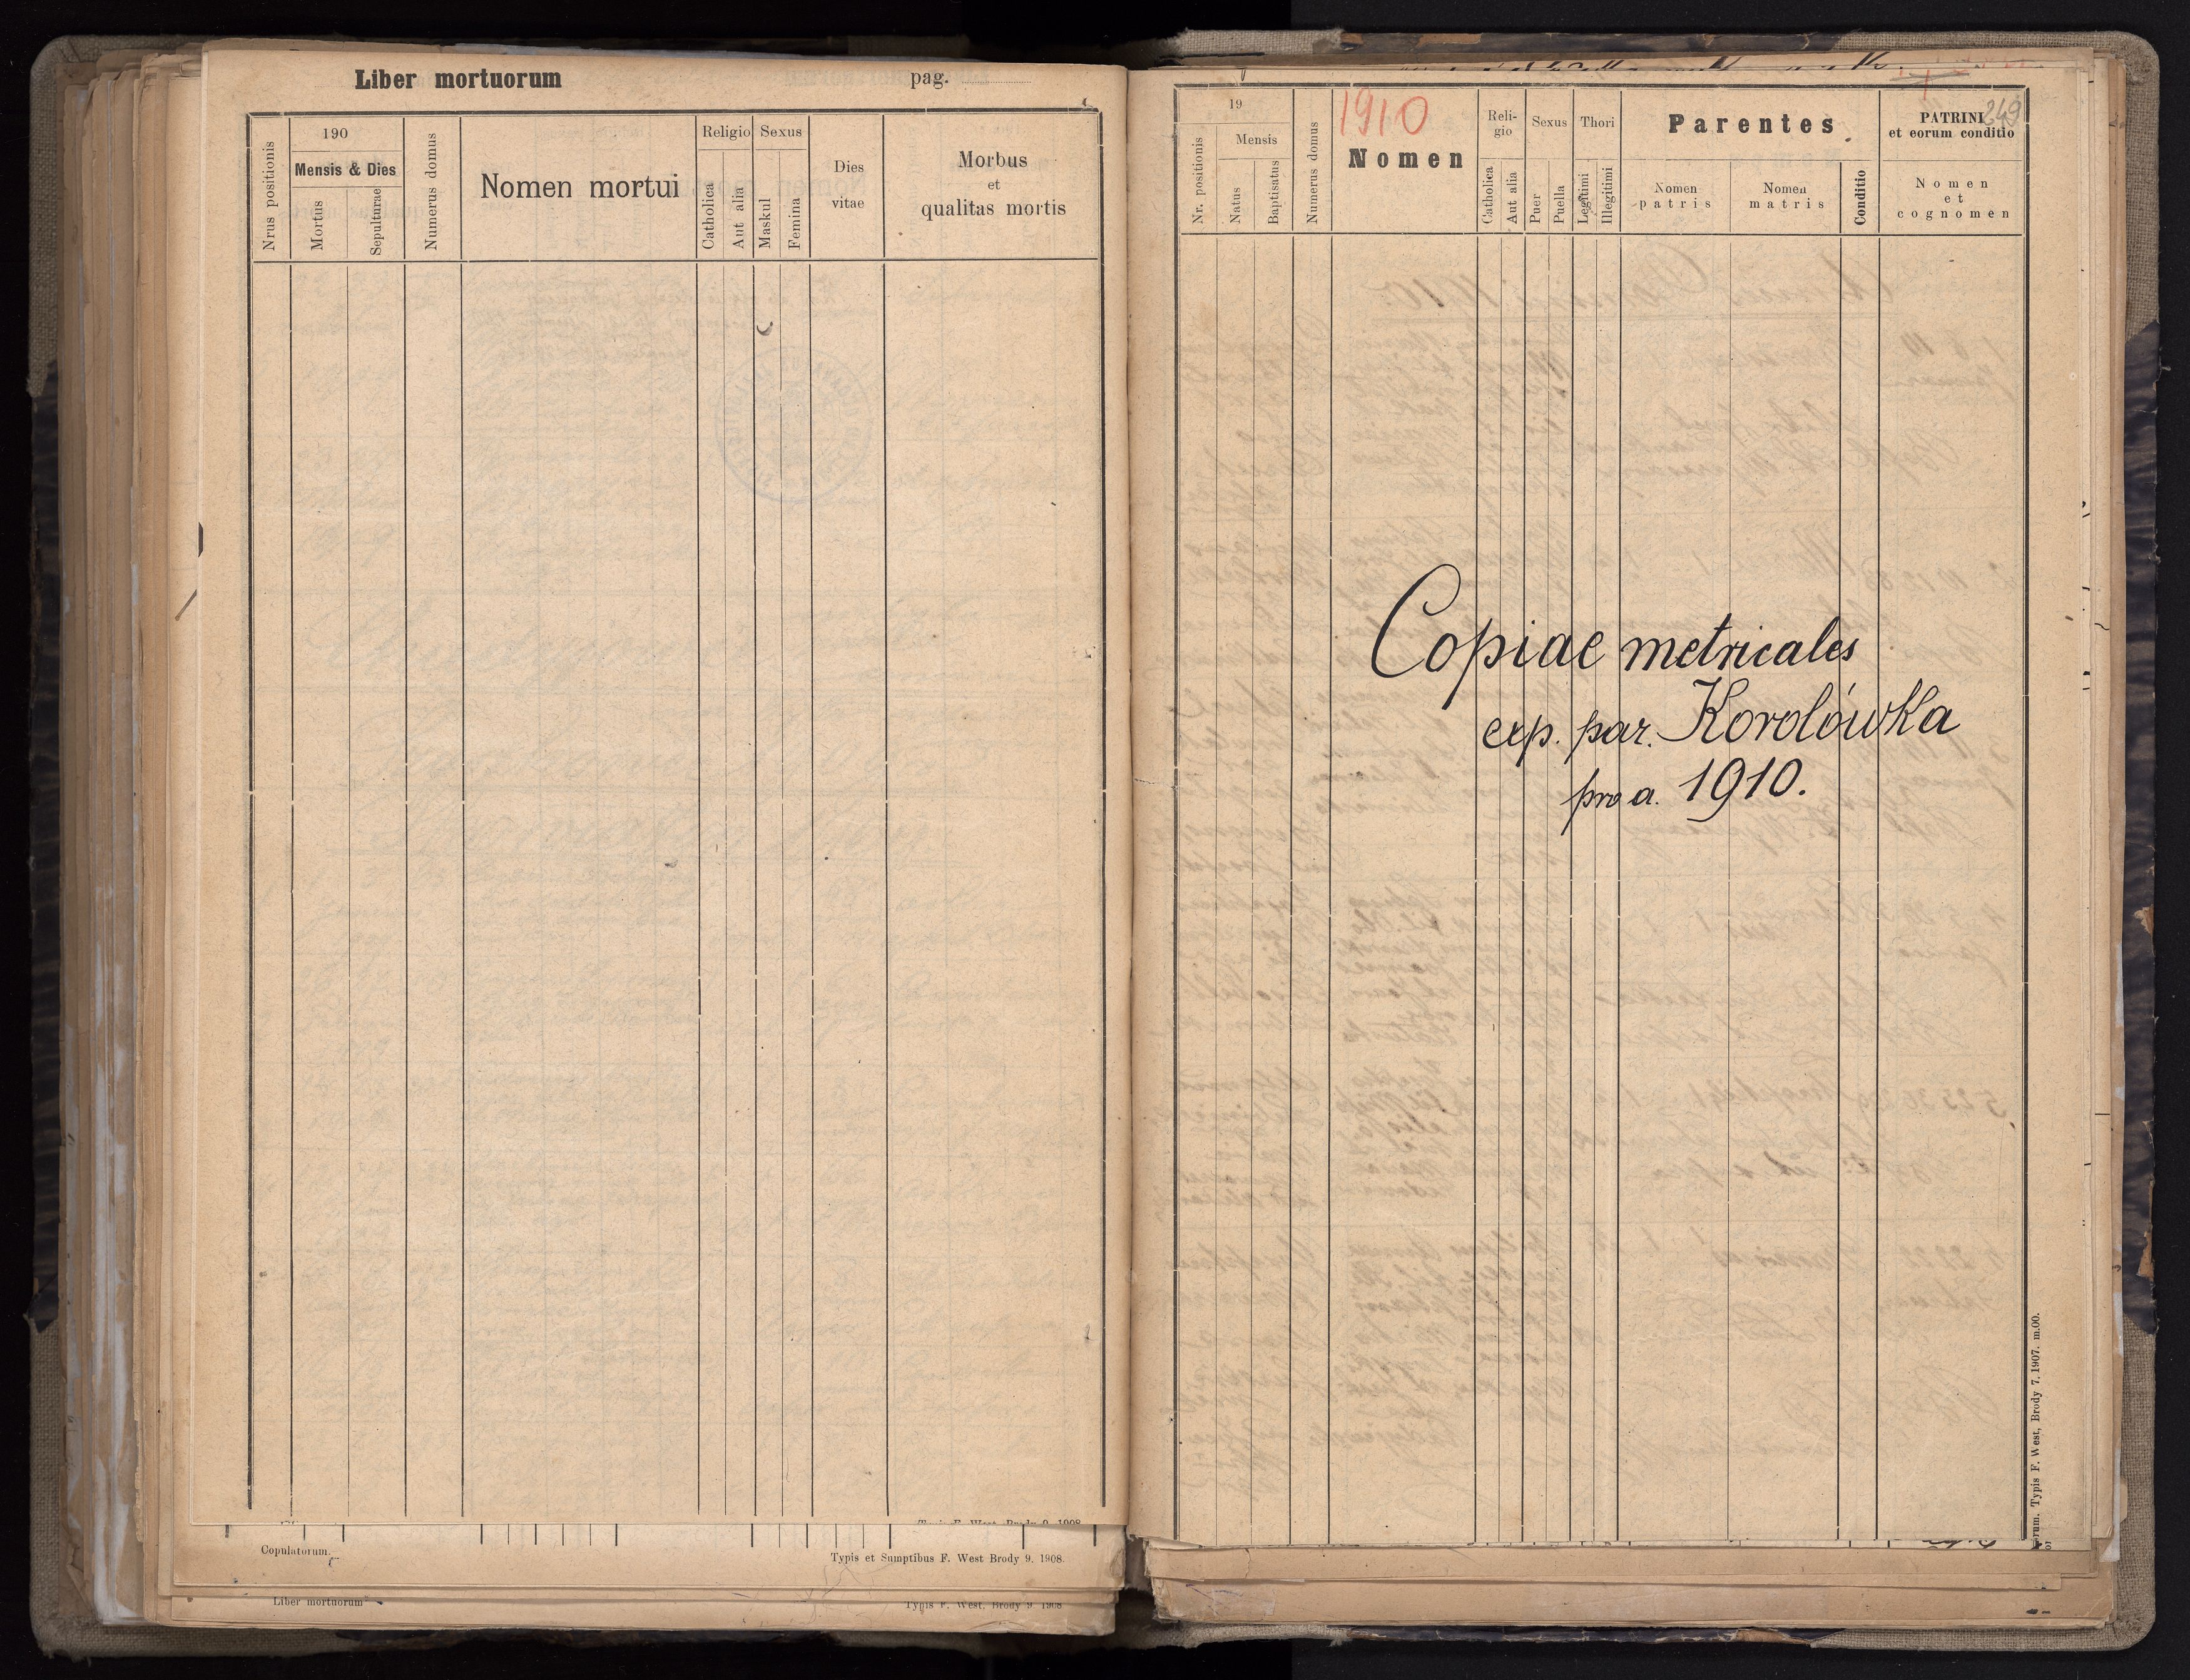 Liber mortuorum pag.
Nrus positionis
190
Mensis & Dies
Mortus
Sepulturae
Numerus domus
Nomen mortui
Religio
Catholica
Aut alia
Sexus
Maskul
Femina
Dies
vitae
Morbus
et
qualitas mortis
Typis F. West Brody 9. 1908
Copulatorum.
Typis et Sumptibus F. West Brody 9. 1908.
Liber mortuorum
Typis F. West, Brody 9 1908
249
Nr. positionis
19
Mensis
Natus
Baptisatus
Numerus domus
1910
Nomen
Reli-
gio
Catholica
Aut alia
Sexus
Puer
Puella
Thori
Legitimi
Illegitimi
Parentes
Nomen
patris
Nomen
matris
Conditio
PATRINI
et eorum conditio
Nomen
et
cognomen
Copiae metricales
exp. par. Korolówka
pro a. 1910.
Typis F. West, Brody 7. 1907. m.00.